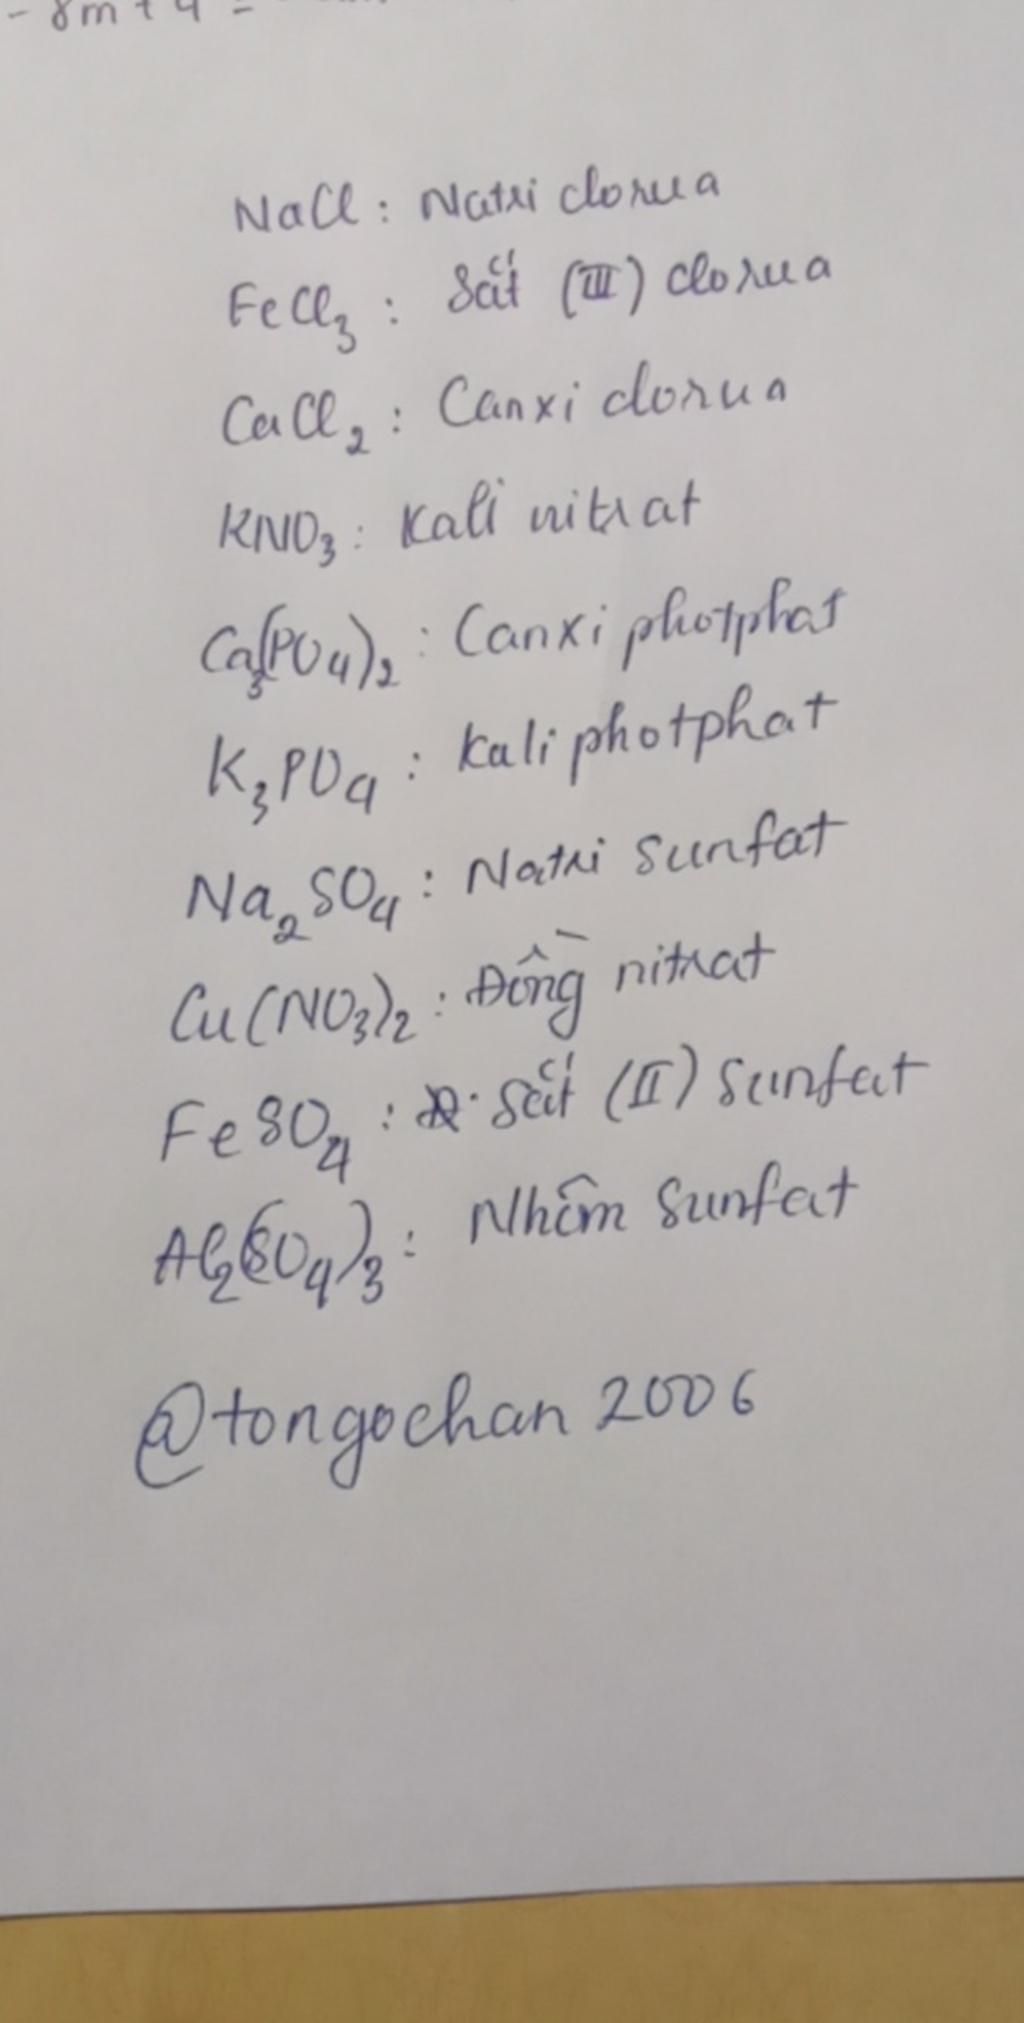 - 8m + 4 =
NaCl : Natri clorua
FeCl₃ : Sắt (III) clorua
CaCl₂ : Canxi clorua
KNO₃ : Kali nitrat
Ca₃(PO₄)₂ : Canxi photphat
K₃PO₄ : Kali photphat
Na₂SO₄ : Natri sunfat
Cu(NO₃)₂ : Đồng nitrat
FeSO₄ : Sắt (II) sunfat
Al₂(SO₄)₃ : Nhôm sunfat
@tongochan 2006